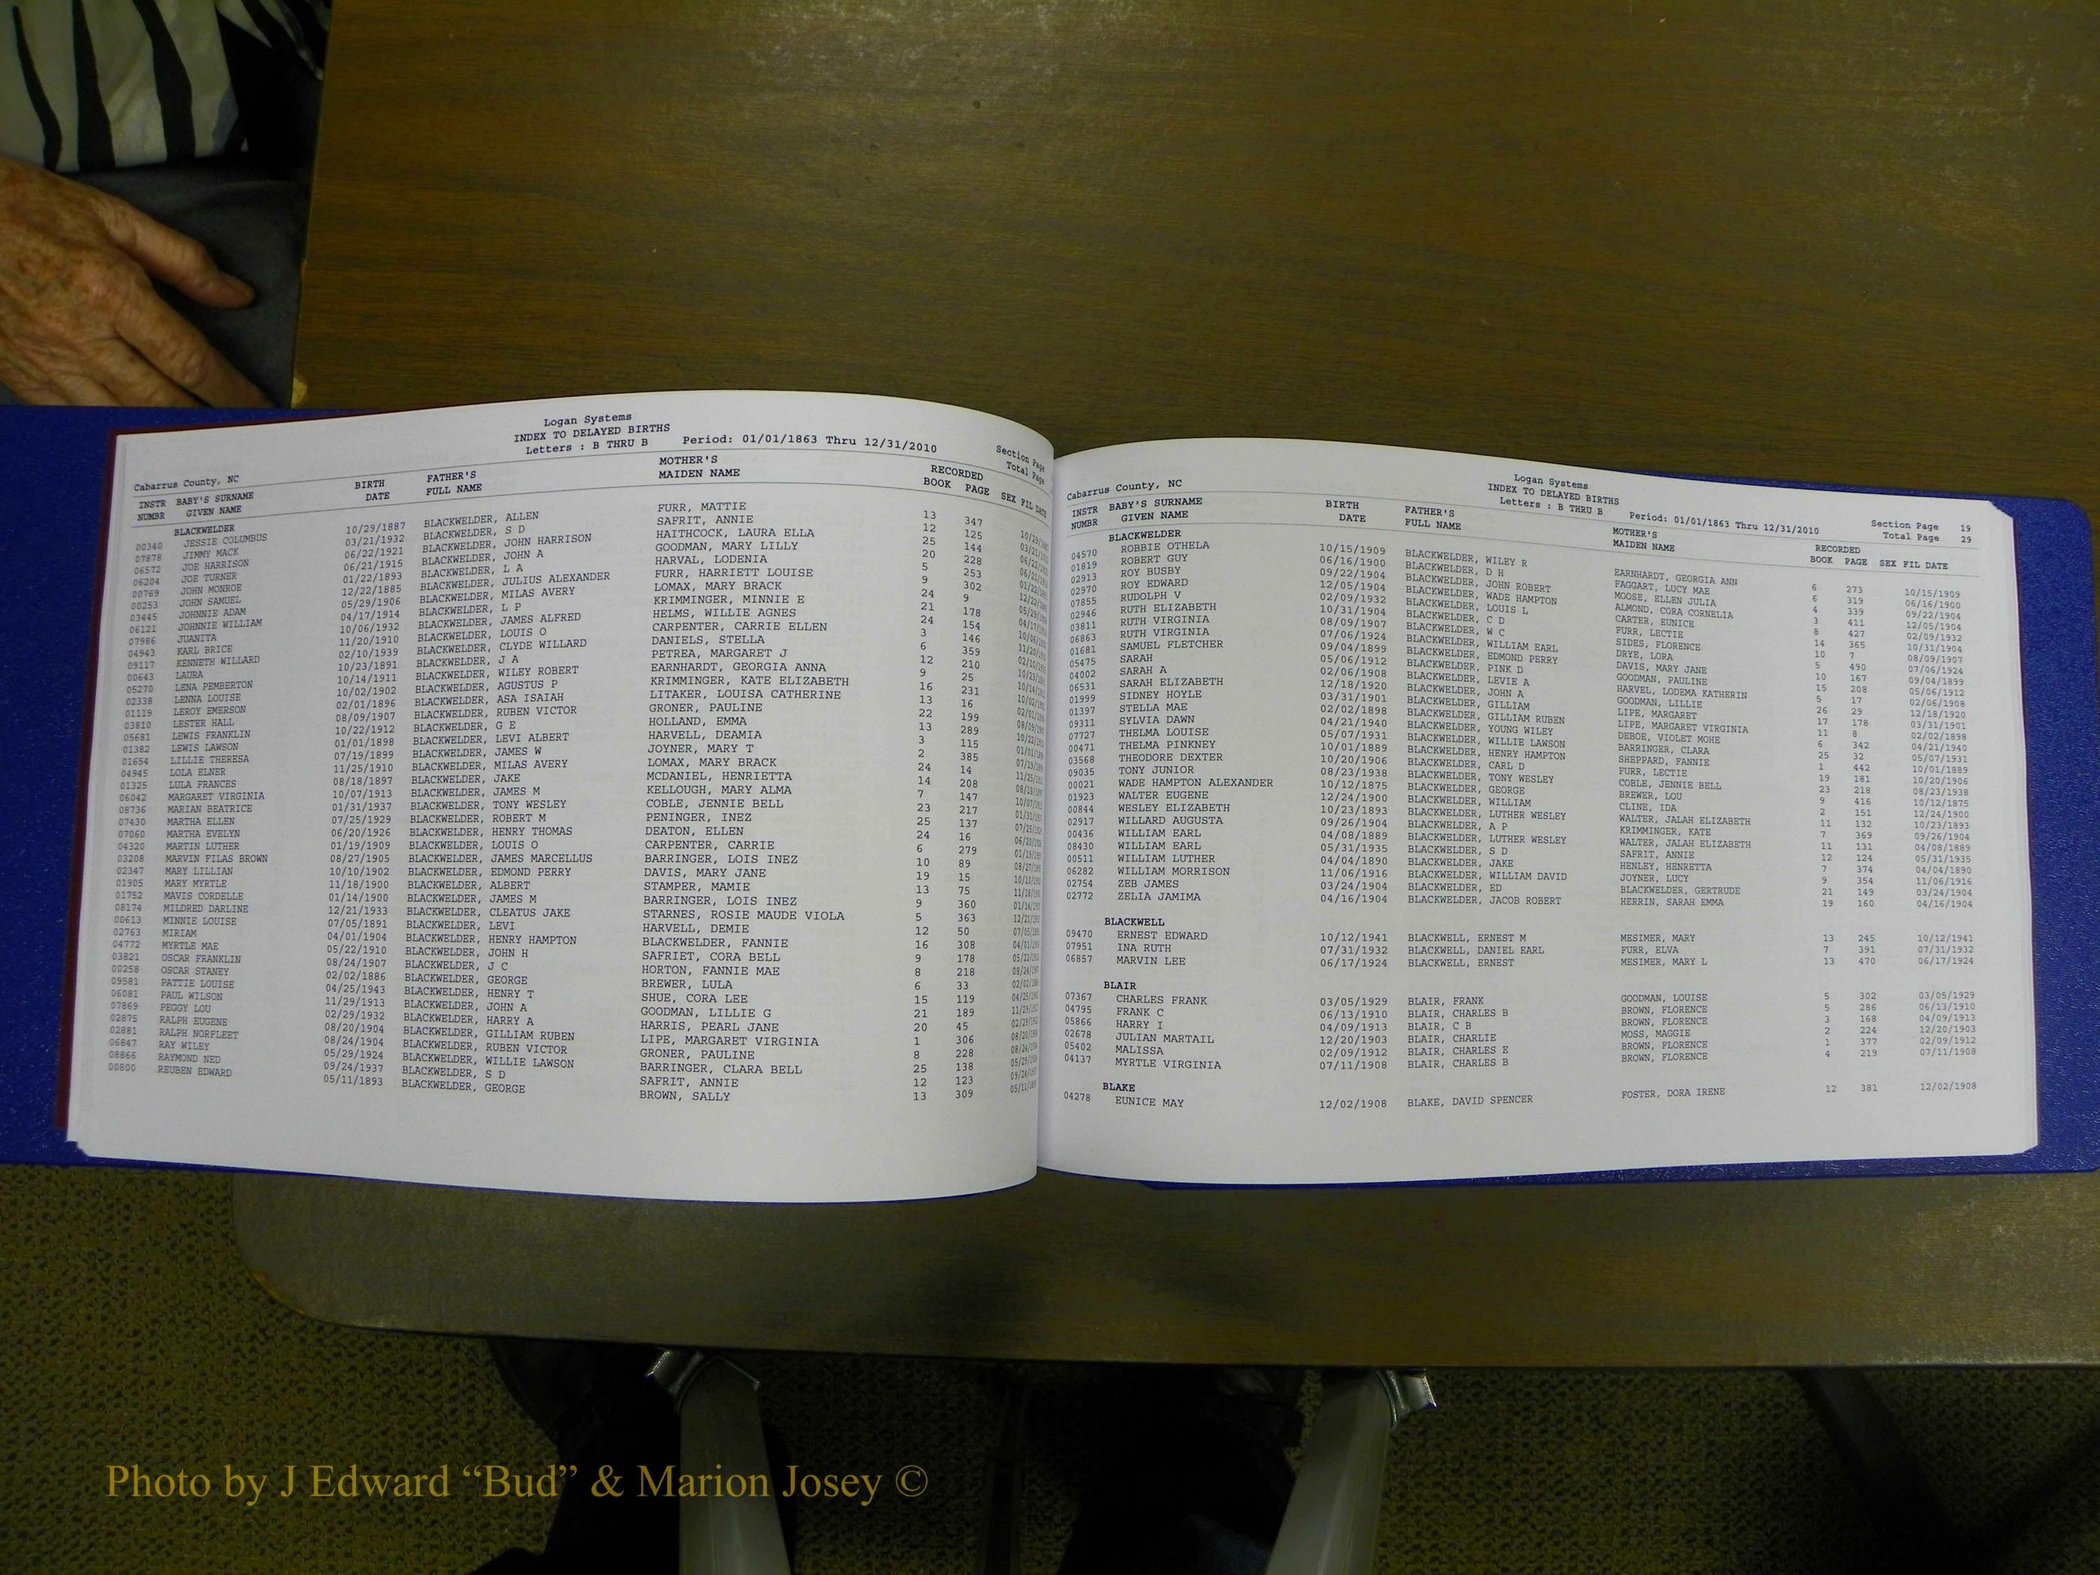 Logan Systems
INDEX TO DELAYED BIRTHS
Letters : B THRU B Period: 01/01/1863 Thru 12/31/2010
Section Page
Total Page
Cabarrus County, NC
INSTR BABY'S SURNAME BIRTH FATHER'S MOTHER'S RECORDED
NUMBR GIVEN NAME DATE FULL NAME MAIDEN NAME BOOK PAGE SEX FIL DATE
BLACKWELDER
00340 JESSIE COLUMBUS 10/29/1887 BLACKWELDER, ALLEN FURR, MATTIE 13 347
07878 JIMMY MACK 03/21/1932 BLACKWELDER, S D SAFRIT, ANNIE 12 125
06572 JOE HARRISON 06/22/1921 BLACKWELDER, JOHN HARRISON HAITHCOCK, LAURA ELLA 25 144
06204 JOE TURNER 06/21/1915 BLACKWELDER, JOHN A GOODMAN, MARY LILLY 20 228
00769 JOHN MONROE 01/22/1893 BLACKWELDER, L A HARVAL, LODENIA 5 253
00253 JOHN SAMUEL 12/22/1885 BLACKWELDER, JULIUS ALEXANDER FURR, HARRIETT LOUISE 9 302
03445 JOHNNIE ADAM 05/29/1906 BLACKWELDER, MILAS AVERY LOMAX, MARY BRACK 24 9
06121 JOHNNIE WILLIAM 04/17/1914 BLACKWELDER, L P KRIMMINGER, MINNIE E 21 178
07986 JUANITA 10/06/1932 BLACKWELDER, JAMES ALFRED HELMS, WILLIE AGNES 24 154
04943 KARL BRICE 11/20/1910 BLACKWELDER, LOUIS O CARPENTER, CARRIE ELLEN 3 146
09117 KENNETH WILLARD 02/10/1939 BLACKWELDER, CLYDE WILLARD DANIELS, STELLA 6 359
00643 LAURA 10/23/1891 BLACKWELDER, J A PETREA, MARGARET J 12 210
05270 LENA PEMBERTON 10/14/1911 BLACKWELDER, WILEY ROBERT EARNHARDT, GEORGIA ANNA 9 25
02338 LENNA LOUISE 10/02/1902 BLACKWELDER, AGUSTUS P KRIMMINGER, KATE ELIZABETH 16 231
01119 LEROY EMERSON 02/01/1896 BLACKWELDER, ASA ISAIAH LITAKER, LOUISA CATHERINE 13 16
03810 LESTER HALL 08/09/1907 BLACKWELDER, RUBEN VICTOR GRONER, PAULINE 22 199
05681 LEWIS FRANKLIN 10/22/1912 BLACKWELDER, G E HOLLAND, EMMA 13 289
01382 LEWIS LAWSON 01/01/1898 BLACKWELDER, LEVI ALBERT HARVELL, DEAMIA 3 115
01654 LILLIE THERESA 07/19/1899 BLACKWELDER, JAMES W JOYNER, MARY T 2 385
04945 LOLA ELNER 11/25/1910 BLACKWELDER, MILAS AVERY LOMAX, MARY BRACK 24 14
01325 LULA FRANCES 08/18/1897 BLACKWELDER, JAKE MCDANIEL, HENRIETTA 14 208
06042 MARGARET VIRGINIA 10/07/1913 BLACKWELDER, JAMES M KELLOUGH, MARY ALMA 7 147
08736 MARIAN BEATRICE 01/31/1937 BLACKWELDER, TONY WESLEY COBLE, JENNIE BELL 23 217
07430 MARTHA ELLEN 07/25/1929 BLACKWELDER, ROBERT M PENINGER, INEZ 25 137
07060 MARTHA EVELYN 06/20/1926 BLACKWELDER, HENRY THOMAS DEATON, ELLEN 24 16
04320 MARTIN LUTHER 01/19/1909 BLACKWELDER, LOUIS O CARPENTER, CARRIE 6 279
03208 MARVIN FILAS BROWN 08/27/1905 BLACKWELDER, JAMES MARCELLUS BARRINGER, LOIS INEZ 10 89
02347 MARY LILLIAN 10/10/1902 BLACKWELDER, EDMOND PERRY DAVIS, MARY JANE 19 15
01905 MARY MYRTLE 11/18/1900 BLACKWELDER, ALBERT STAMPER, MAMIE 13 75
01752 MAVIS CORDELLE 01/14/1900 BLACKWELDER, JAMES M BARRINGER, LOIS INEZ 9 360
08174 MILDRED DARLINE 12/21/1933 BLACKWELDER, CLEATUS JAKE STARNES, ROSIE MAUDE VIOLA 5 363
00613 MINNIE LOUISE 07/05/1891 BLACKWELDER, LEVI HARVELL, DEMIE 12 50
02763 MIRIAM 04/01/1904 BLACKWELDER, HENRY HAMPTON BLACKWELDER, FANNIE 16 308
04772 MYRTLE MAE 05/22/1910 BLACKWELDER, JOHN H SAFRIET, CORA BELL 9 178
03821 OSCAR FRANKLIN 08/24/1907 BLACKWELDER, J C HORTON, FANNIE MAE 8 218
00258 OSCAR STANEY 02/02/1886 BLACKWELDER, GEORGE BREWER, LULA 6 33
09581 PATTIE LOUISE 04/25/1943 BLACKWELDER, HENRY T SHUE, CORA LEE 15 119
06081 PAUL WILSON 11/29/1913 BLACKWELDER, JOHN A GOODMAN, LILLIE G 21 189
07869 PEGGY LOU 02/29/1932 BLACKWELDER, HARRY A HARRIS, PEARL JANE 20 45
02875 RALPH EUGENE 08/20/1904 BLACKWELDER, GILLIAM RUBEN LIPE, MARGARET VIRGINIA 1 306
02881 RALPH NORFLEET 08/24/1904 BLACKWELDER, RUBEN VICTOR GRONER, PAULINE 8 228
06847 RAY WILEY 05/29/1924 BLACKWELDER, WILLIE LAWSON BARRINGER, CLARA BELL 25 138
08866 RAYMOND NED 09/24/1937 BLACKWELDER, S D SAFRIT, ANNIE 12 123
00800 REUBEN EDWARD 05/11/1893 BLACKWELDER, GEORGE BROWN, SALLY 13 309
Logan Systems
INDEX TO DELAYED BIRTHS
Letters : B THRU B Period: 01/01/1863 Thru 12/31/2010
Section Page 19
Total Page 29
Cabarrus County, NC
INSTR BABY'S SURNAME BIRTH FATHER'S MOTHER'S RECORDED
NUMBR GIVEN NAME DATE FULL NAME MAIDEN NAME BOOK PAGE SEX FIL DATE
BLACKWELDER
04570 ROBBIE OTHELA 10/15/1909 BLACKWELDER, WILEY R EARNHARDT, GEORGIA ANN 6 273 10/15/1909
01819 ROBERT GUY 06/16/1900 BLACKWELDER, D H FAGGART, LUCY MAE 6 319 06/16/1900
02913 ROY BUSBY 09/22/1904 BLACKWELDER, JOHN ROBERT MOOSE, ELLEN JULIA 4 339 09/22/1904
02970 ROY EDWARD 12/05/1904 BLACKWELDER, WADE HAMPTON ALMOND, CORA CORNELIA 3 411 12/05/1904
07855 RUDOLPH V 02/09/1932 BLACKWELDER, LOUIS L CARTER, EUNICE 8 427 02/09/1932
02946 RUTH ELIZABETH 10/31/1904 BLACKWELDER, C D FURR, LECTIE 14 365 10/31/1904
03811 RUTH VIRGINIA 08/09/1907 BLACKWELDER, W C SIDES, FLORENCE 10 7 08/09/1907
06863 RUTH VIRGINIA 07/06/1924 BLACKWELDER, WILLIAM EARL DRYE, LORA 5 490 07/06/1924
01681 SAMUEL FLETCHER 09/04/1899 BLACKWELDER, EDMOND PERRY DAVIS, MARY JANE 10 167 09/04/1899
05475 SARAH 05/06/1912 BLACKWELDER, PINK D GOODMAN, PAULINE 15 208 05/06/1912
04002 SARAH A 02/06/1908 BLACKWELDER, LEVIE A HARVEL, LODEMA KATHERIN 5 17 02/06/1908
06531 SARAH ELIZABETH 12/18/1920 BLACKWELDER, JOHN A GOODMAN, LILLIE 26 29 12/18/1920
01999 SIDNEY HOYLE 03/31/1901 BLACKWELDER, GILLIAM LIPE, MARGARET 17 178 03/31/1901
01397 STELLA MAE 02/02/1898 BLACKWELDER, GILLIAM RUBEN LIPE, MARGARET VIRGINIA 11 8 02/02/1898
09311 SYLVIA DAWN 04/21/1940 BLACKWELDER, YOUNG WILEY DEBOE, VIOLET MOHE 6 342 04/21/1940
07727 THELMA LOUISE 05/07/1931 BLACKWELDER, WILLIE LAWSON BARRINGER, CLARA 25 32 05/07/1931
00471 THELMA PINKNEY 10/01/1889 BLACKWELDER, HENRY HAMPTON SHEPPARD, FANNIE 1 442 10/01/1889
03568 THEODORE DEXTER 10/20/1906 BLACKWELDER, CARL D FURR, LECTIE 19 181 10/20/1906
09035 TONY JUNIOR 08/23/1938 BLACKWELDER, TONY WESLEY COBLE, JENNIE BELL 23 218 08/23/1938
00021 WADE HAMPTON ALEXANDER 10/12/1875 BLACKWELDER, GEORGE BREWER, LOU 9 416 10/12/1875
01923 WALTER EUGENE 12/24/1900 BLACKWELDER, WILLIAM CLINE, IDA 2 151 12/24/1900
00844 WESLEY ELIZABETH 10/23/1893 BLACKWELDER, LUTHER WESLEY WALTER, JALAH ELIZABETH 11 132 10/23/1893
02917 WILLARD AUGUSTA 09/26/1904 BLACKWELDER, A P KRIMMINGER, KATE 7 369 09/26/1904
00436 WILLIAM EARL 04/08/1889 BLACKWELDER, LUTHER WESLEY WALTER, JALAH ELIZABETH 11 131 04/08/1889
08430 WILLIAM EARL 05/31/1935 BLACKWELDER, S D SAFRIT, ANNIE 12 124 05/31/1935
00511 WILLIAM LUTHER 04/04/1890 BLACKWELDER, JAKE HENLEY, HENRETTA 7 374 04/04/1890
06282 WILLIAM MORRISON 11/06/1916 BLACKWELDER, WILLIAM DAVID JOYNER, LUCY 9 354 11/06/1916
02754 ZEB JAMES 03/24/1904 BLACKWELDER, ED BLACKWELDER, GERTRUDE 21 149 03/24/1904
02772 ZELIA JAMIMA 04/16/1904 BLACKWELDER, JACOB ROBERT HERRIN, SARAH EMMA 19 160 04/16/1904
BLACKWELL
09470 ERNEST EDWARD 10/12/1941 BLACKWELL, ERNEST M MESIMER, MARY 13 245 10/12/1941
07951 INA RUTH 07/31/1932 BLACKWELL, DANIEL EARL FURR, ELVA 7 391 07/31/1932
06857 MARVIN LEE 06/17/1924 BLACKWELL, ERNEST MESIMER, MARY L 13 470 06/17/1924
BLAIR
07367 CHARLES FRANK 03/05/1929 BLAIR, FRANK GOODMAN, LOUISE 5 302 03/05/1929
04795 FRANK C 06/13/1910 BLAIR, CHARLES B BROWN, FLORENCE 5 286 06/13/1910
05866 HARRY I 04/09/1913 BLAIR, C B BROWN, FLORENCE 3 168 04/09/1913
02678 JULIAN MARTAIL 12/20/1903 BLAIR, CHARLIE MOSS, MAGGIE 2 224 12/20/1903
05402 MALISSA 02/09/1912 BLAIR, CHARLES E BROWN, FLORENCE 1 377 02/09/1912
04137 MYRTLE VIRGINIA 07/11/1908 BLAIR, CHARLES B BROWN, FLORENCE 4 219 07/11/1908
BLAKE
04278 EUNICE MAY 12/02/1908 BLAKE, DAVID SPENCER FOSTER, DORA IRENE 12 381 12/02/1908
Photo by J Edward “Bud” & Marion Josey ©